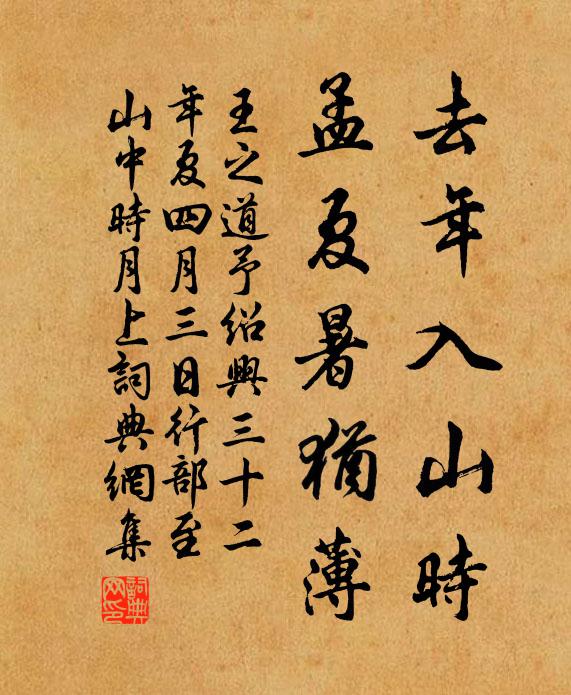 去年入山時
孟夏暑猶薄
王之道予紹興三十二
年夏四月三日行部至
山中時月上詞典網集
詞典
网印